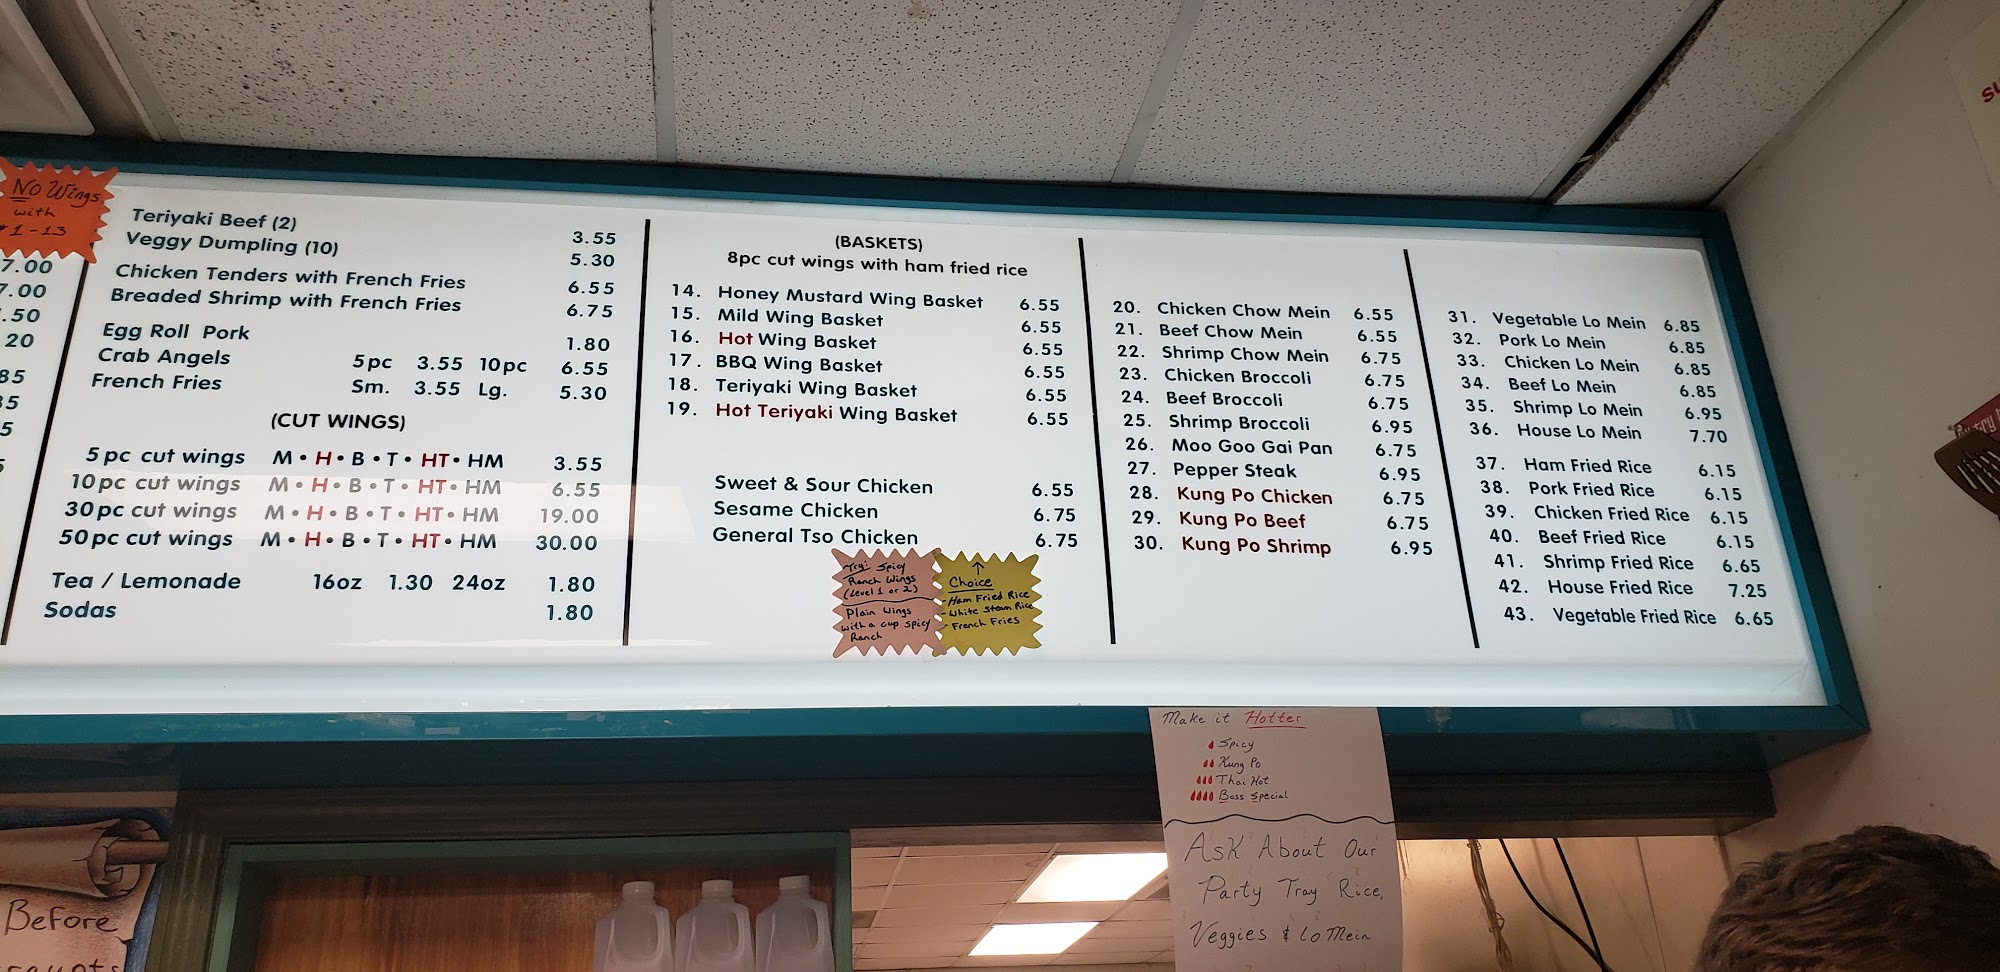 No Wings
with
1-13
7.00
7.00
.50
20
85
5
5
Teriyaki Beef (2) 3.55
Veggy Dumpling (10) 5.30
Chicken Tenders with French Fries 6.55
Breaded Shrimp with French Fries 6.75
Egg Roll Pork 1.80
Crab Angels 5pc 3.55 10pc 6.55
French Fries Sm. 3.55 Lg. 5.30
(CUT WINGS)
5 pc cut wings M • H • B • T • HT • HM 3.55
10 pc cut wings M • H • B • T • HT • HM 6.55
30 pc cut wings M • H • B • T • HT • HM 19.00
50 pc cut wings M • H • B • T • HT • HM 30.00
Tea / Lemonade 16oz 1.30 24oz 1.80
Sodas 1.80
(BASKETS)
8pc cut wings with ham fried rice
14. Honey Mustard Wing Basket 6.55
15. Mild Wing Basket 6.55
16. Hot Wing Basket 6.55
17. BBQ Wing Basket 6.55
18. Teriyaki Wing Basket 6.55
19. Hot Teriyaki Wing Basket 6.55
Sweet & Sour Chicken 6.55
Sesame Chicken 6.75
General Tso Chicken 6.75
Try: Spicy
Ranch Wings
(Level 1 or 2)
Plain Wings
with a cup spicy
Ranch
↑
Choice
- Ham Fried Rice
- White Steam Rice
- French Fries
20. Chicken Chow Mein 6.55
21. Beef Chow Mein 6.55
22. Shrimp Chow Mein 6.75
23. Chicken Broccoli 6.75
24. Beef Broccoli 6.75
25. Shrimp Broccoli 6.95
26. Moo Goo Gai Pan 6.75
27. Pepper Steak 6.95
28. Kung Po Chicken 6.75
29. Kung Po Beef 6.75
30. Kung Po Shrimp 6.95
31. Vegetable Lo Mein 6.85
32. Pork Lo Mein 6.85
33. Chicken Lo Mein 6.85
34. Beef Lo Mein 6.85
35. Shrimp Lo Mein 6.95
36. House Lo Mein 7.70
37. Ham Fried Rice 6.15
38. Pork Fried Rice 6.15
39. Chicken Fried Rice 6.15
40. Beef Fried Rice 6.15
41. Shrimp Fried Rice 6.65
42. House Fried Rice 7.25
43. Vegetable Fried Rice 6.65
Make it Hotter
Spicy
Kung Po
Thai Hot
Boss Special
Ask About Our
Party Tray Rice,
Veggies & Lo Mein
Before